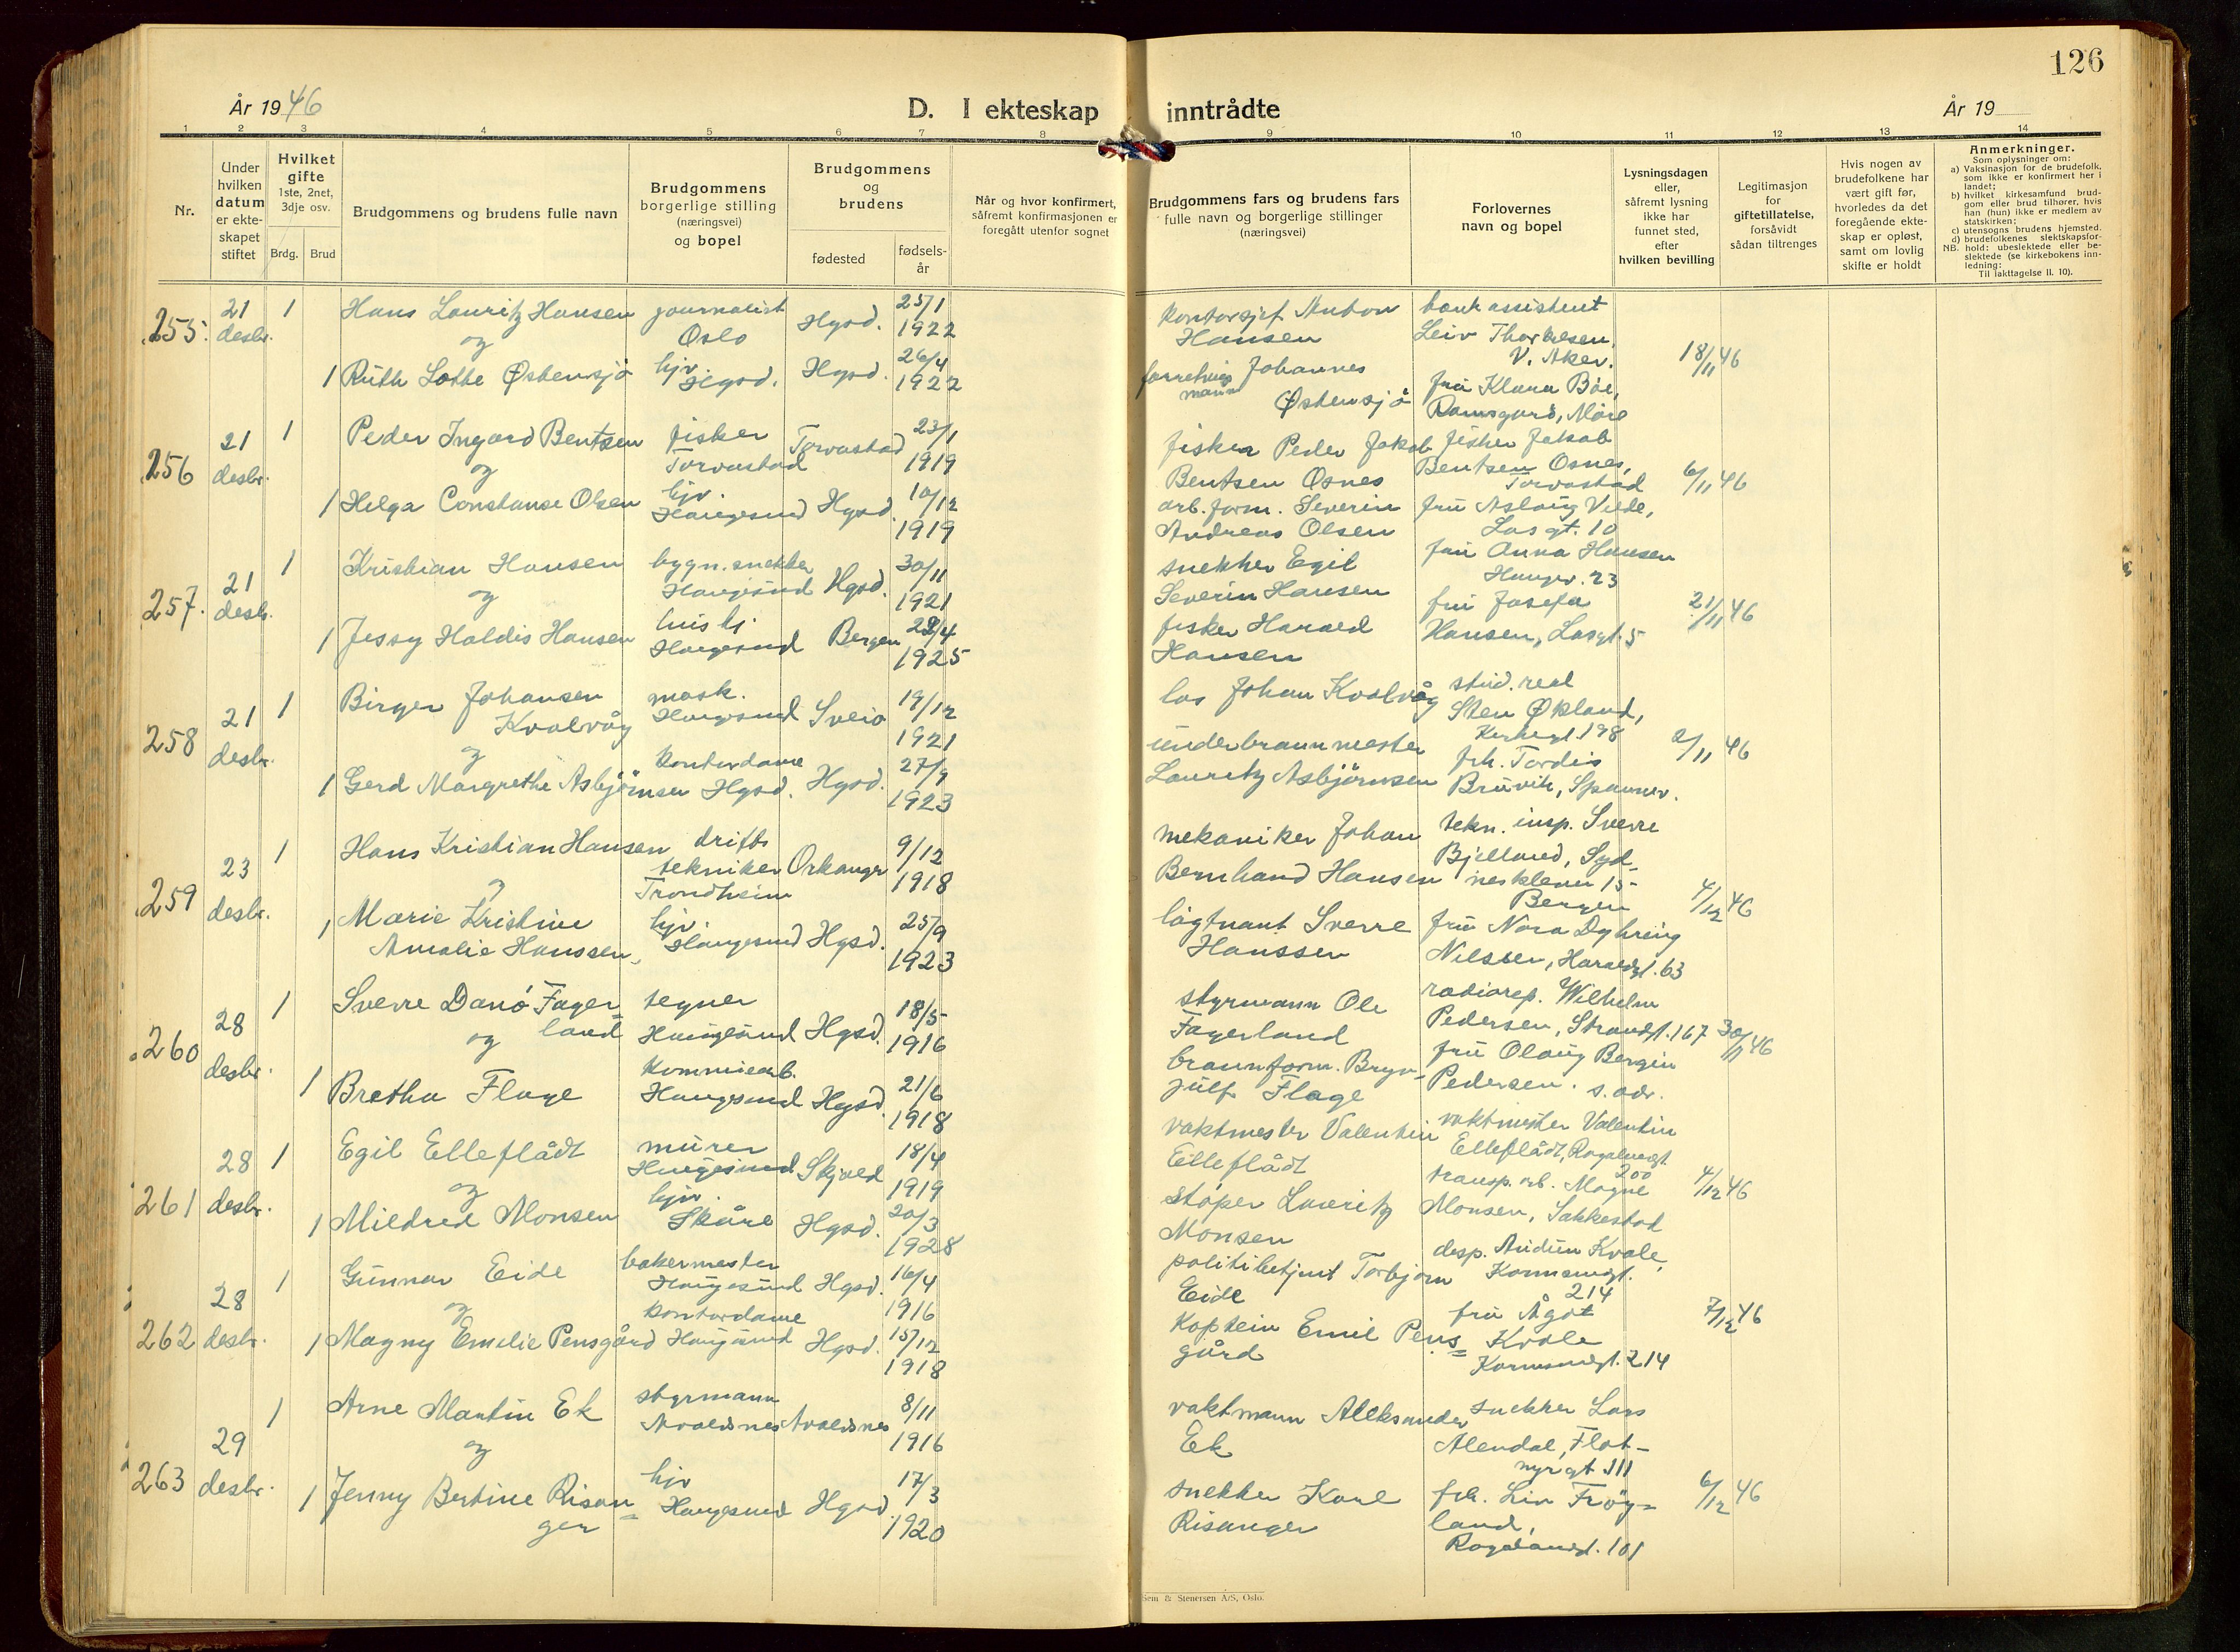 126
År 1946
D. I ekteskap inntrådte
År 19
1 2 3 4 5 6 7 8 9 10 11 12 13 14
Nr.
Under
hvilken
datum
er ekte-
skapet
stiftet
Hvilket
gifte
1ste, 2net,
3dje osv.
Brdg. Brud
Brudgommens og brudens fulle navn
Brudgommens
borgerlige stilling
(næringsvei)
og bopel
Brudgommens
og
brudens
fødested
fødsels-
år
Når og hvor konfirmert,
såfremt konfirmasjonen er
foregått utenfor sognet
Brudgommens fars og brudens fars
fulle navn og borgerlige stillinger
(næringsvei)
Forlovernes
navn og bopel
Lysningsdagen
eller,
såfremt lysning
ikke har
funnet sted,
efter
hvilken bevilling
Legitimasjon
for
giftetillatelse,
forsåvidt
sådan tiltrenges
Hvis nogen av
brudefolkene har
vært gift før,
hvorledes da det
foregående ekte-
skap er opløst,
samt om lovlig
skifte er holdt
Anmerkninger.
Som oplysninger om:
a) Vaksinasjon for de brudefolk,
som ikke er konfirmert her i
landet;
b) hvilket kirkesamfund brud-
gom eller brud tilhører, hvis
han (hun) ikke er medlem av
statskirken;
c) utensogns brudens hjemsted.
d) brudefolkenes slektskapsfor-
NB. hold: ubeslektede eller be-
slektede (se kirkebokens inn-
ledning:
Til iakttagelse II. 10).
255. 21 desbr. 1 Hans Lauritz Hansen journalist Oslo Hgsd. 25/1 1922
og
1 Ruth Lotte Østensjø hjv. Hgsd. Hgsd. 26/4 1922
kontorsjef Anton
Hansen
forretnings
mann Johannes
Østensjø
bankassistent
Leiv Thorkelsen,
V. Aker.
fru Klara Bøe,
Ramsgard, Møre
18/11 46
256 21 desbr. 1 Peder Ingard Bentsen fisker Torvastad Torvastad 23/1 1919
og
1 Helga Constanse Olsen hjv. Haugesund Hgsd. 10/12 1919
fisker Peder Jakob
Bentsen Osnes
arb.form. Severin
Andreas Olsen
fisker Jakob
Bentsen Osnes,
Torvastad
fru Aslaug Vede,
Losgt. 10
6/11 46
257. 21 desbr. 1 Kristian Hansen bygn.snekker Haugesund Hgsd. 30/11 1921
og
1 Jessy Haldis Hansen hushj. Haugesund Bergen 22/4 1925
snekker Egil
Severin Hansen
fisker Harald
Hansen
fru Anna Hansen
Haugev. 23
fru Josefa
Hansen, Losgt. 5
21/11 46
258 21 desbr. 1 Birger Johansen
Kvalvåg mask. Haugesund Sveio 19/12 1921
og
1 Gerd Margrethe Asbjørnsen kontordame Hgsd. Hgsd. 27/9 1923
los Johan Kvalvåg
underbrannmester
Lauritz Asbjørnsen
stud. real
Sten Økland,
Kirkegt. 198
frk. Tordis
Bruvik, Spannav.
2/11 46
259 23 desbr. 1 Hans Kristian Hansen drifts
tekniker
Trondheim Orkanger 9/12 1918
og
1 Marie Kristine
Amalie Hanssen, hjv. Haugesund Hgsd. 25/9 1923
mekaniker Johan
Bernhard Hansen
løytnant Sverre
Hanssen
tekn. insp. Sverre
Bjelland, Syd
nesklever 15
Bergen
fru Nora Dyhring
Nilssen, Haraldsgt. 63
4/12 46
260 28 desbr. 1 Sverre Danø Fager
land tegner Haugesund Hgsd. 18/5 1916
og
1 Bretha Flage kommisarb. Haugesund Hgsd. 21/6 1918
styrmann Ole
Fagerland
brannform. Bryn-
julf Flage
radiorep. Wilhelm
Pedersen, Strandgt. 167
fru Olaug Bergin
Pedersen. s. adr.
30/11 46
261 28 desbr. 1 Egil Ellefládt murer Haugesund Skjold 18/4 1919
og
1 Mildred Monsen hjv. Skåre Hgsd. 20/3 1928
vaktmester Valentin
Elleflådt
støper Lauritz
Monsen
vaktmester Valentin
Elleflådt, Rogalandsgt.
200
transp. arb. Magne
Monsen, Sakkestad
4/12 46
262 28 desbr. 1 Gunnar Eide bakermester Haugesund Hgsd. 16/4 1916
og
1 Magny Emelie Pensgård kontordame Haugesund Hgsd. 15/12 1918
politibetjent Torbjørn
Eide
kaptein Emil Pens
gård
desp. Audun Kvale,
Karmsundgt.
214
fru Ågot
Kvale
Karmsundgt. 214
7/12 46
263 29 desbr. 1 Arne Martin Ek styrmann Avaldsnes Avaldsnes 8/11 1916
og
1 Jenny Bertine Risan=
ger hjv Haugesund Hgsd. 17/3 1920
vaktmann Aleksander
Ek
snekker Karl
Risanger
snekker Lars
Alendal, Flot-
nyrgt 111
frk. Liv Frøy=
land,
Rogalandsgt. 101
6/12 46
Sem & Stenersen A/S, Oslo.